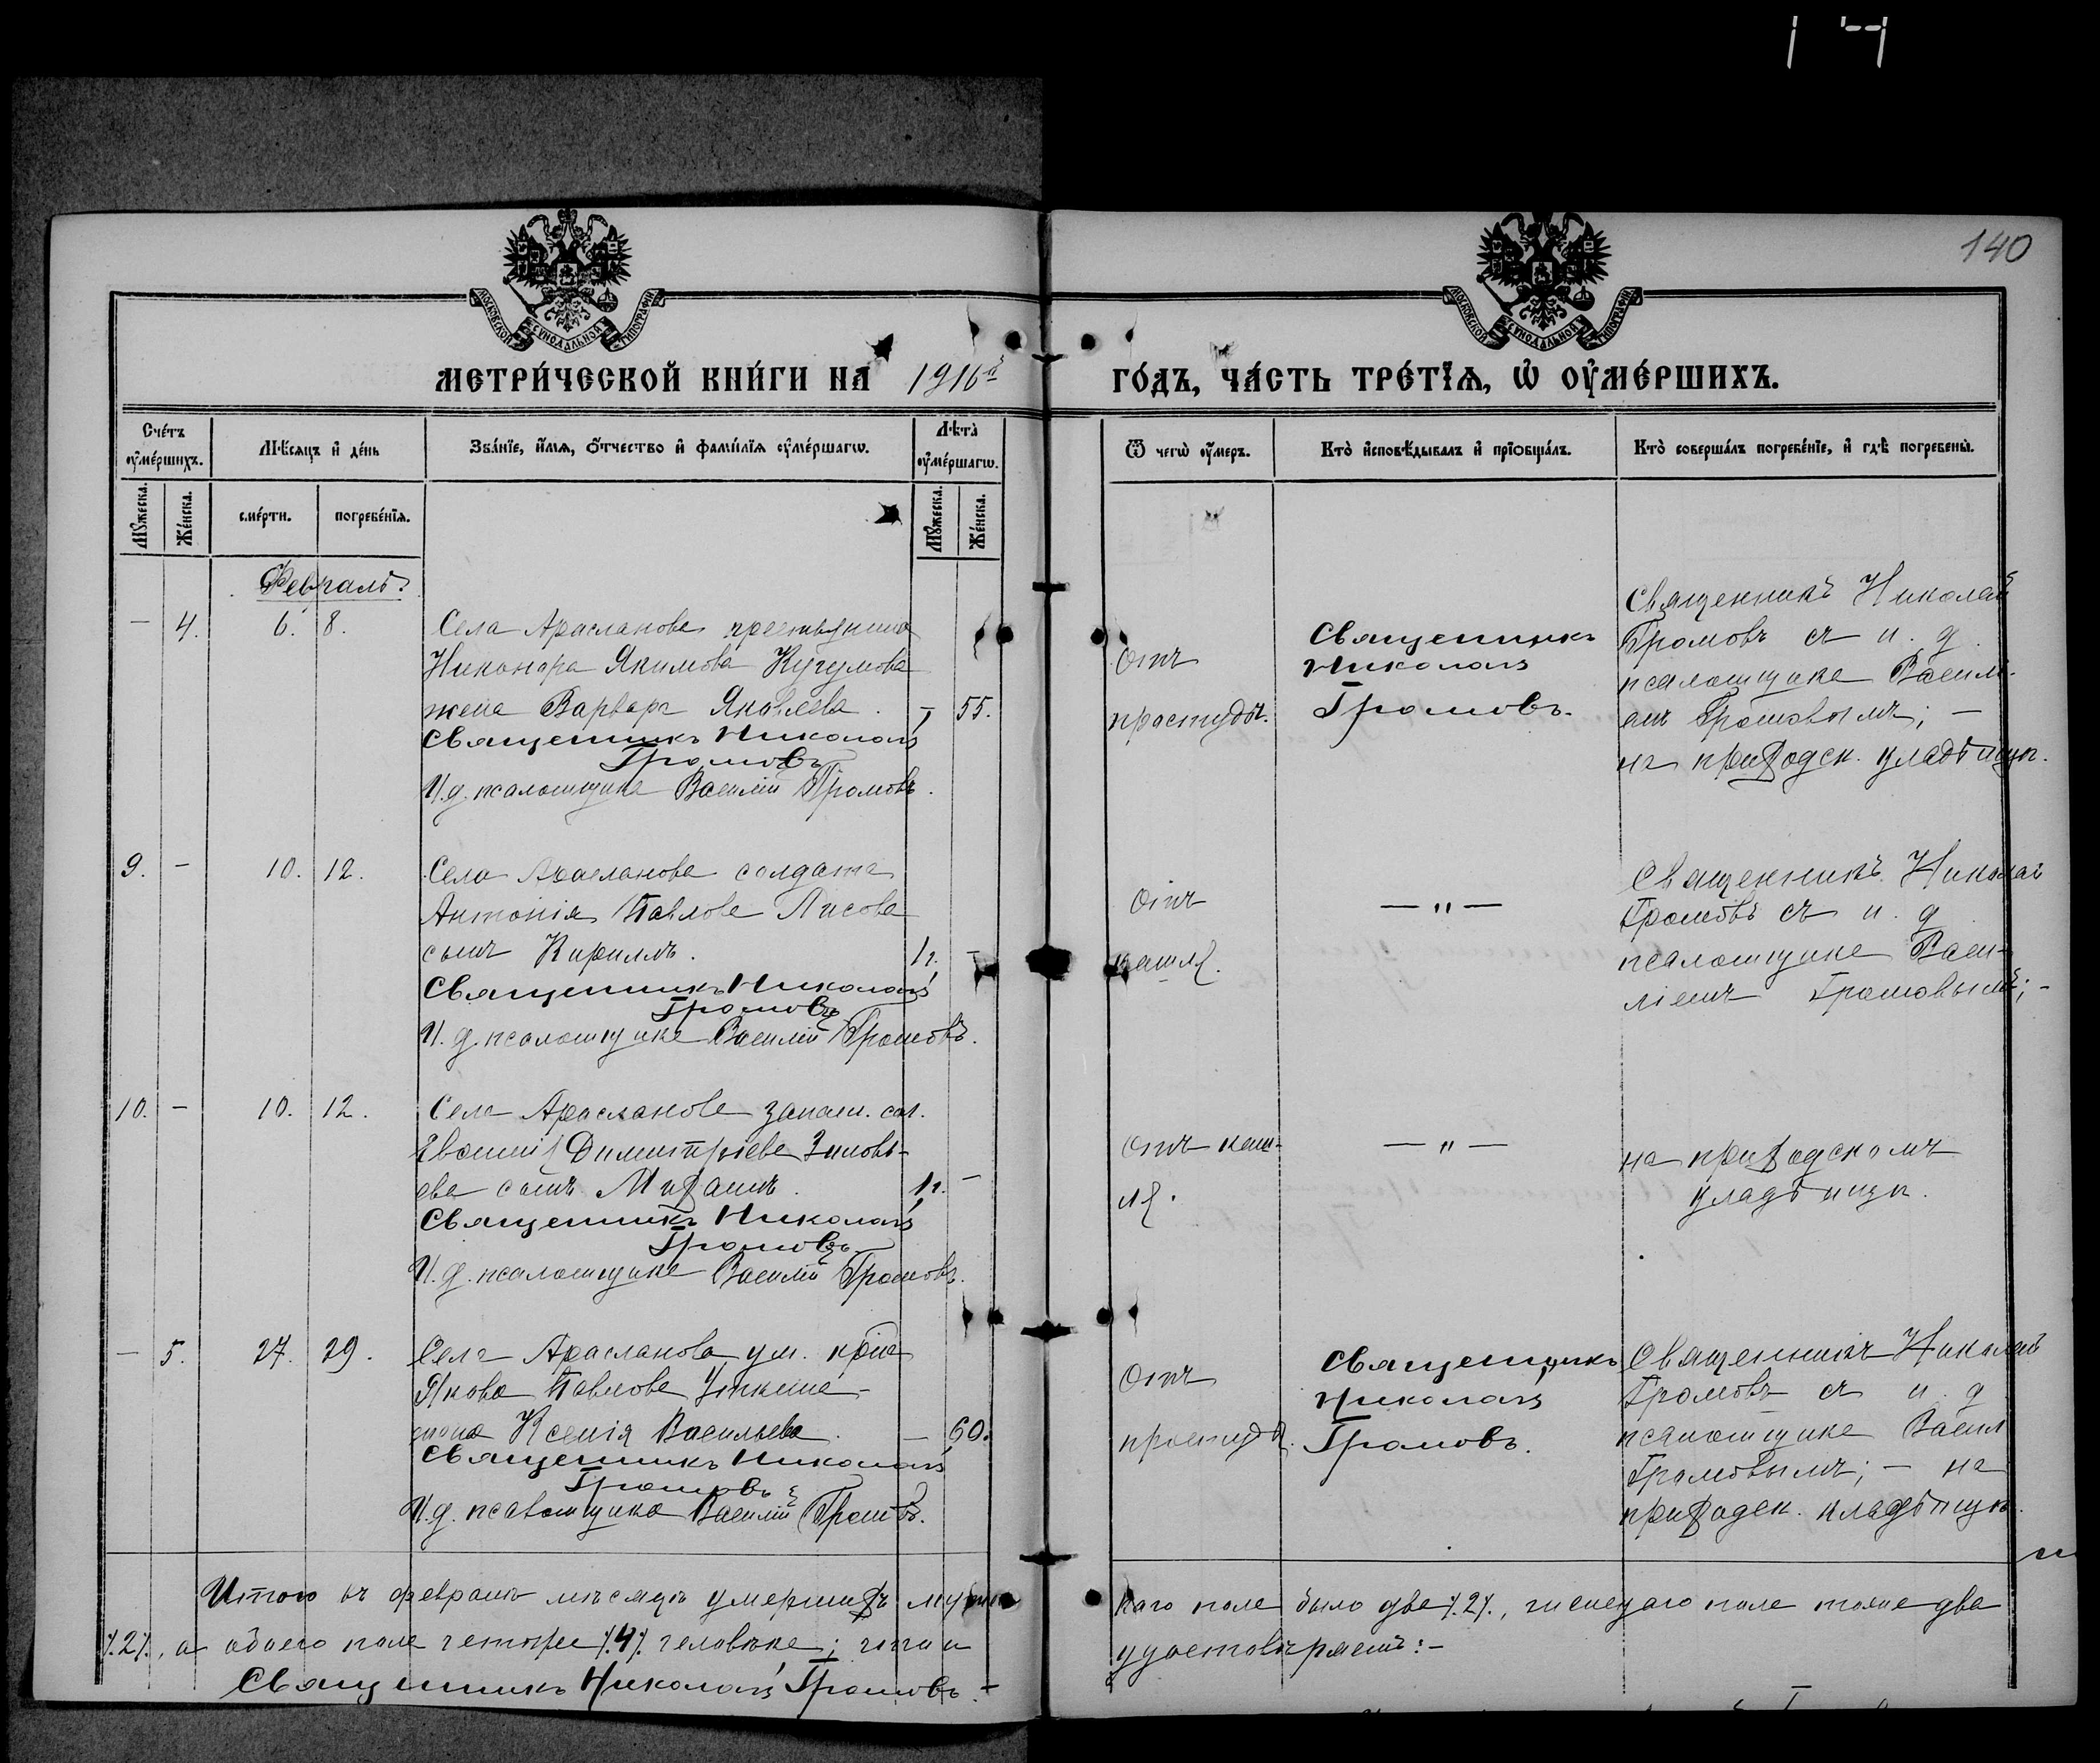 140
МОСКОВСКОЙ СУНОДАЛЬНОЙ ТИПОГРАФІИ
МОСКОВСКОЙ СУНОДАЛЬНОЙ ТИПОГРАФІИ
МЕТРИ́ЧЕСКОЙ КНИ́ГИ НА 1916й ГО́ДЪ, ЧА́СТЬ ТРЕ́ТЇѦ, Ѡ ОУМЕ́РШИХЪ.
Сче́тъ оумéршихъ.
Мѣ́сяцъ и де́нь
Зва́нїе, и́мѧ, о́тчество и фами́лїѧ оуме́ршагѡ.
Лѣ́та оуме́ршагѡ.
Ѿ чегѡ̀ оу́меръ.
Кто̀ исповѣ́дывалъ и прїѡбща́лъ.
Кто̀ соверша́лъ погребе́нїе, и гдѣ̀ погребены̀.
Мꙋ́жеска.
Же́нска.
сме́рти.
погребе́нїѧ.
Мꙋ́жеска.
Же́нска.
Февраль.
— 4. 6. 8.
Села Арасланова крестьянина
Никанора Якимова
жена Варвара Яковлева. — 55.
Священникъ Николай
Громовъ
И.д. псаломщика Василій Громовъ.
Отъ
простуды.
Священникъ
Николай
Громовъ.
Священникъ Николай
Громовъ съ и. д.
псаломщика Васили-
емъ Громовымъ; —
на приходск. кладбищѣ.
9. — 10. 12.
Села Арасланова солдата
Антонія Павлова Лисова
сынъ Кириллъ. 1г. —
Священникъ Николай
Громовъ
И.д. псаломщика Василій Громовъ.
Отъ
кашля.
— " —
Священникъ Николай
Громовъ съ и. д.
псаломщика Васи-
ліемъ Громовымъ; -
10. — 10. 12.
Села Арасланова запасн. сол.
Евѳимія Димитріева Зиновь-
ева сынъ Михаилъ. 1г. —
Священникъ Николай
Громовъ
И.д. псаломщика Василій Громовъ.
Отъ каш-
ля.
— " —
на приходскомъ
кладбищѣ.
— 5. 27. 29.
Села Арасланова ум. кр-на
Якова Павлова
жена Ксенія Васильева. — 60.
Священникъ Николай
Громовъ
И.д. псаломщика Василій Громовъ.
Отъ
простуды.
Священникъ
Николай
Громовъ.
Священникъ Николай
Громовъ съ и. д.
псаломщика Васил
Громовымъ; — на
приходск. кладбищѣ.
Итого въ февралѣ мѣсяцѣ умершихъ мужес-
каго пола было два /.2/., женскаго пола тоже два
/.2/., а обоего пола четыре /.4/. человѣка; что и
удостовѣряемъ:—
Священникъ Николай Громовъ.—